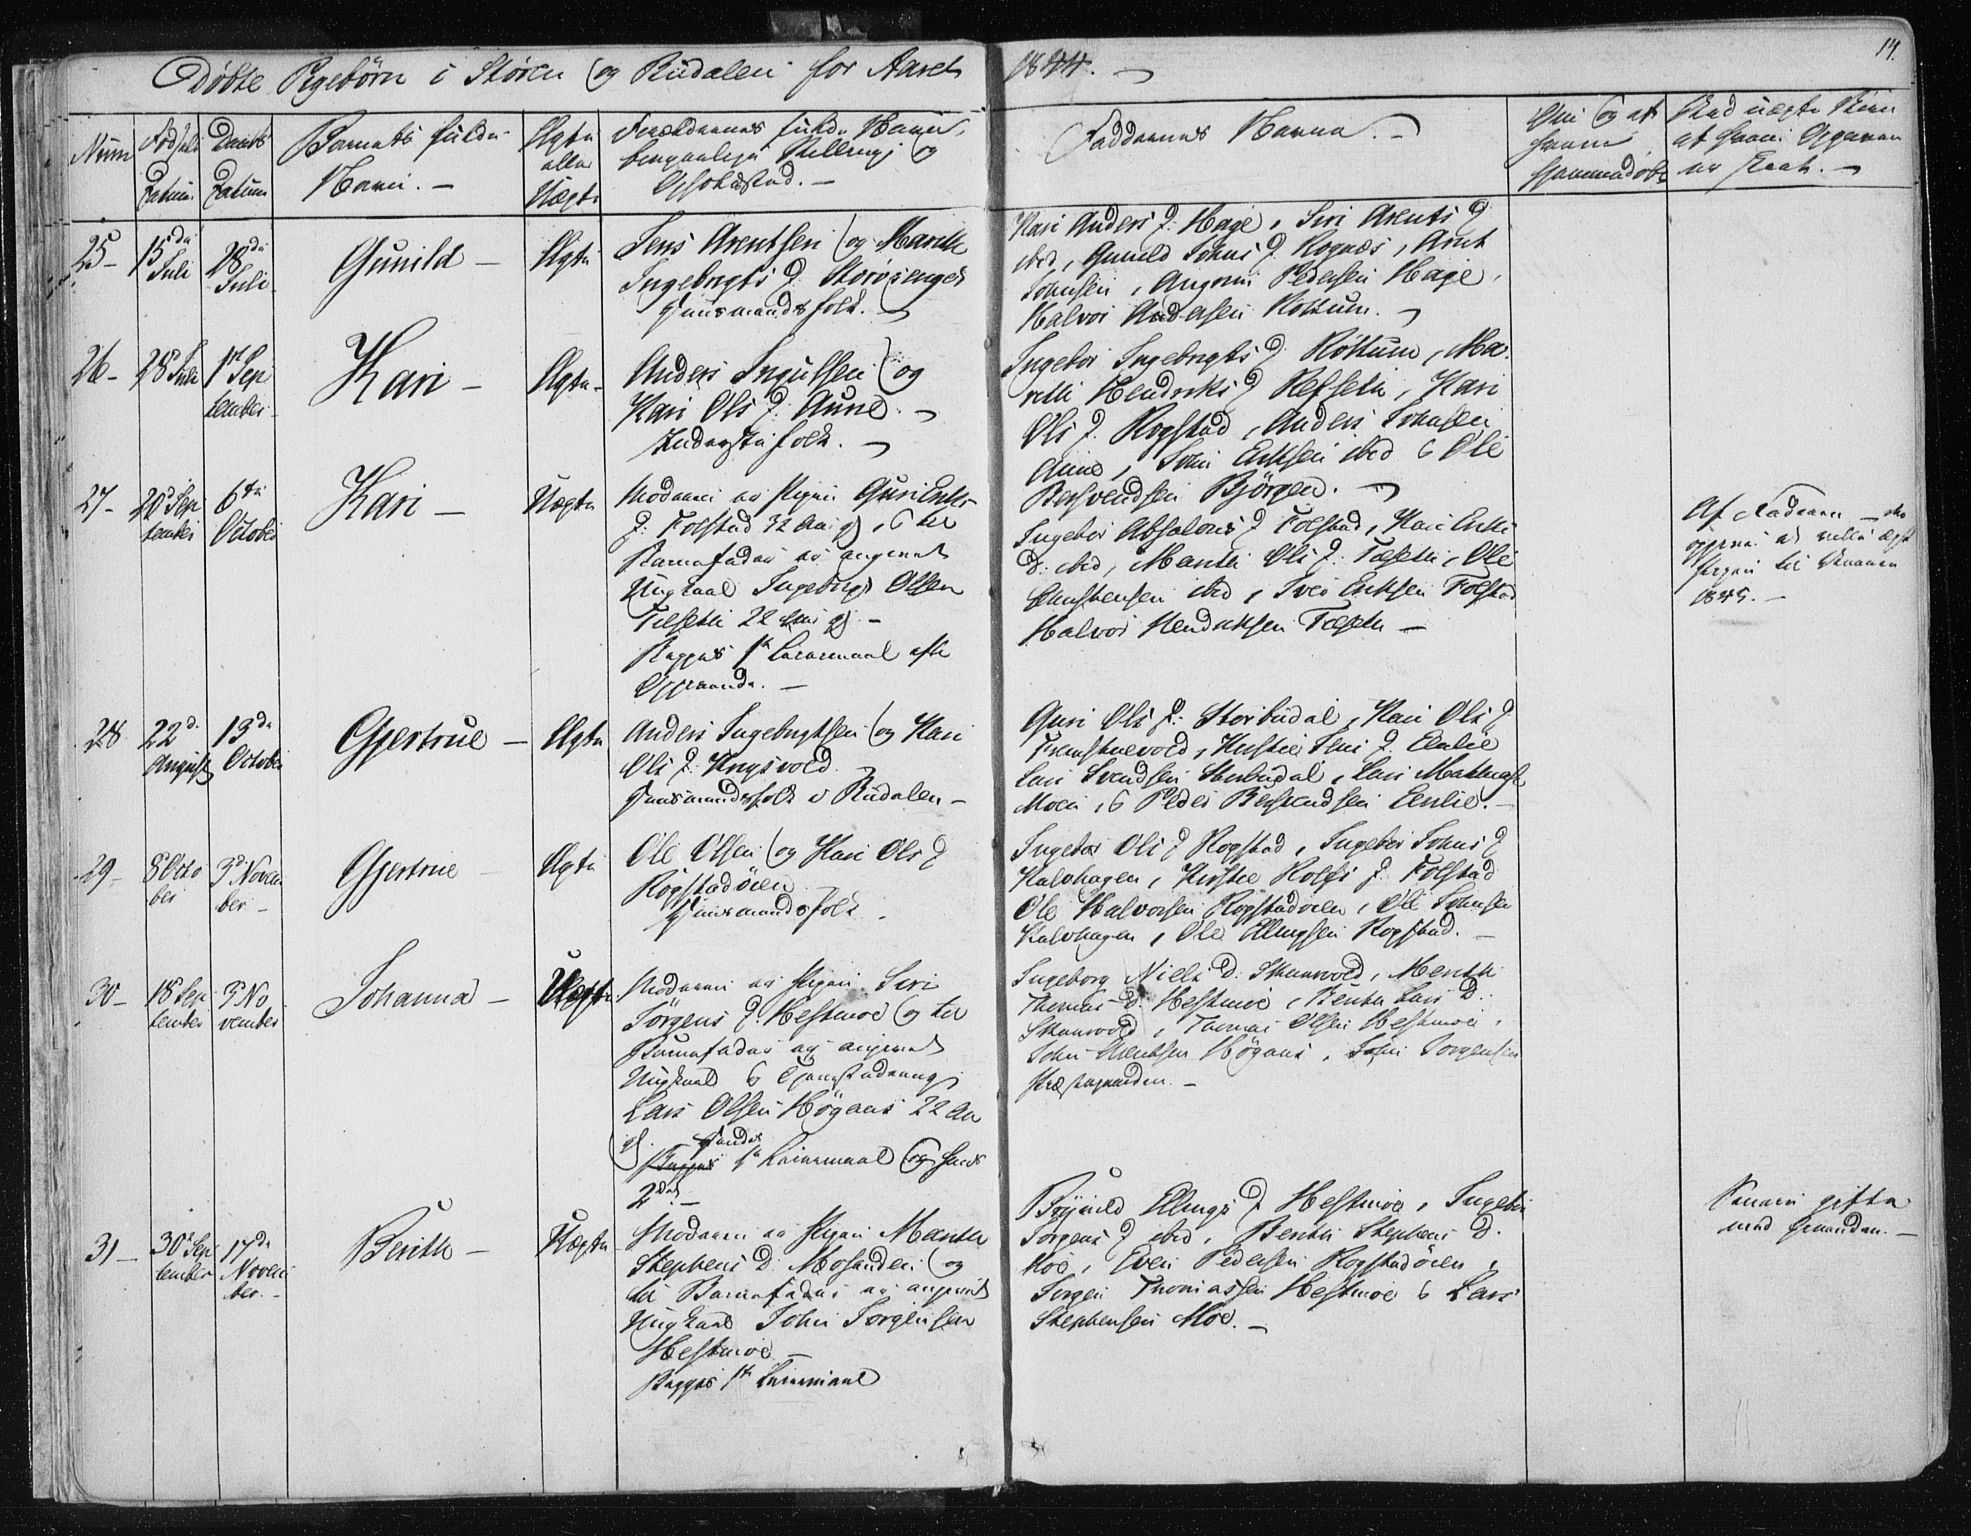 Døbte Pigebørn i Støren og Budalen for Aaret 1844. —
14.
Num
Fødsels Datum
Daabs Datum
Barnets fulde Navn. —
Ægte eller Uægte
Forældrenes fulde Navne, borgerlige Stilling og Opholdssted. —
Faddernes Navne. —
hjemmedøbt
25 —
15de Juli
28de Juli
Gunild —
Ægte
Jens Arentsen og Marith
Ingebrigts D. Storøienget
Huusmandsfolk. —
Kari Anders D. Hage, Siri Arents D
ibid, Gunild Johns D. Rognæs, Arnt
Johnsen, Pedersen Hage,
Halvor Andersen Rottum. —
26 —
28 Juli
1ste September
Kari —
Ægte —
Anders Ingulfsen og
Kari Ols D. Aune. —
Inderstfolk. —
Ingebor Ingebrigts D. Rottum, Ma-
rith Hendriks D Refseth, Kari
Ols D. Rogstad, Anders Johnsen
Aune, John Eriksen ibid & Ole
Bersvendsen Bjørgen. —
27 —
20de September
6te October
Kari —
Uægte
Moderen er Pigen Guri Eriks
D. Folstad 32 Aar gl, & til
Barnefader er angivet
Ungkarl Ingebrigt Olsen
22 Aar gl. —
Begges 1ste Leiermaal efter
Opgivende. —
Ingebor Absalons D Folstad, Kari Eriks
D. ibid, Marith Ols D. , Ole
ibid, Iver Eriksen Folstad
Halvor Hendriksen —
Af Faderen —
1845. —
28
22de August
13de October
Gjertrue —
Ægte
Anders Ingebrigtsen og Kari
Ols D.
Huusmandsfolk i Budalen —
Guri Ols D. Storbudal, Kari Ols D
, Kirstie Jens D. Enlie
Lars Svendsen Storbudal, Lars
Moen, & Peder Bersvendsen Enlie. —
29 —
8 October
3de November —
Gjertrue —
Ægte
Ole Olsen og Kari Ols D
Rogstadøien
Huusmandsfolk.
Ingebor Ols D Rogstad, Ingebor Johns D
Kalvhagen, Kirstie Rolfs D. Folstad
Ole Halvorsen Rogstadøien, Ole Johnsen
Kalvhagen, Ole Ellingsen Rogstad. —
30 —
18 September
3de November
Johanna —
Uægte
Moderen er Pigen Siri
Jørgens D. Hestmoe og til
Barnefader er angivet
Ungkarl &
Lars Olsen Høgaas 22 Aar
gl. Hendes
Begges 1ste Leiermaal og hans
2det —
Ingeborg Niels D. , Merith
Thomas D. Hestmoe, Berith Lars D.
, Thomas Olsen Hestmoe,
John Arentsen Høgaas, John Jorgensen
31 —
30de September
17de November. —
Berith —
Uægte
Moderen er Pigen Marith
Stephens D. Mosanden og
til Barnefader er angivet
Ungkarl John Jorgensen
Hestmoe —
Begges 1ste Leiermaal
Ellings D Hestmoe, Ingebor
Jorgens D ibid, Berith Stephens D.
Moe, Even Pedersen Rogstadøien,
Jorgen Thomassen Hestmoe & Lars
Stephensen Moe. —
Senere gifte
med hinanden. —